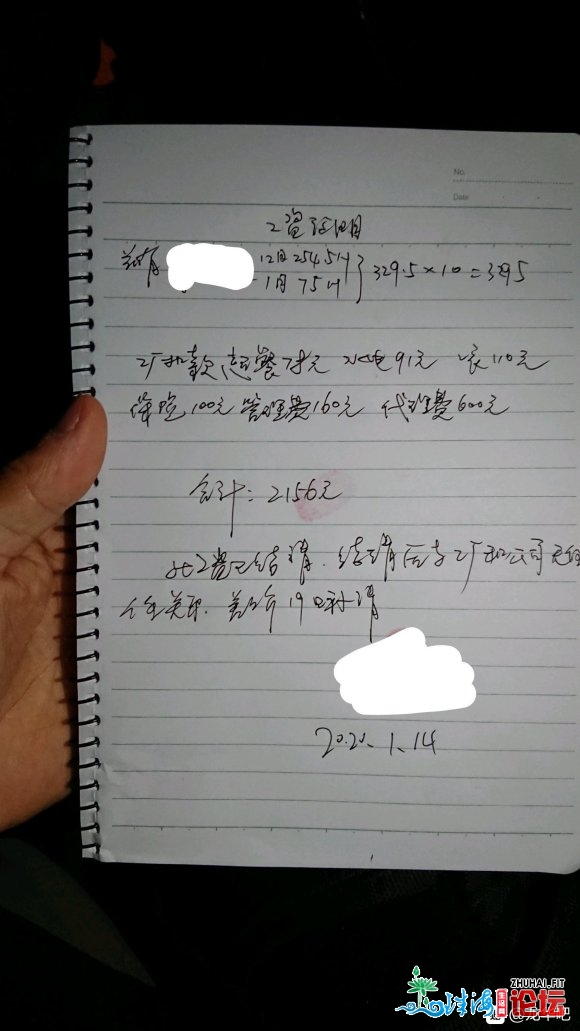 No.
Date
工资证明
兹有 12月 254.5H
1月 75H } 329.5×10=3295
工厂扣款 超餐78元 水电91元 衣110元
保险100元 管理费160元 代理费600元
合计=2156元
此工资已结清.结清后与工厂和公司无任
何关系.差价19日补清
2020.1.14
珠海
ZHUHAI.FIT
生活网
论坛